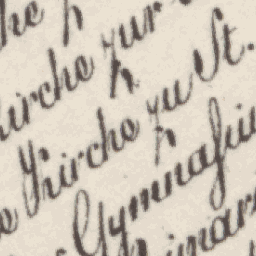 he
Kirche zur
Kirche zu St.
Gymnasiu